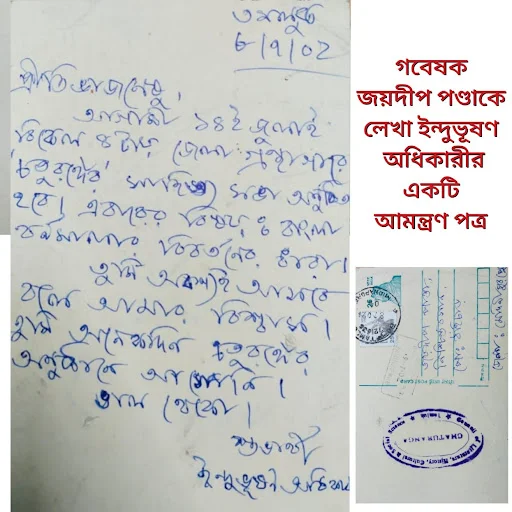 তমলুক
৮/৭/০২
প্রীতিভাজনেষু,
আগামী ১৪ই জুলাই
বিকেল ৪টায় জেলা গ্রন্থাগারে
চতুরঙ্গের সাহিত্য সভা অনুষ্ঠিত
হবে। এবারের বিষয় ঃ বাংলা
বর্ণমালার বিবর্তনের ধারা।
তুমি অবশ্যই আসবে
বলে আমার বিশ্বাস।
তুমি অনেকদিন চতুরঙ্গের
অনুষ্ঠানে আসোনি।
ভাল থেকো।
শুভার্থী
ইন্দুভূষণ অধিকারী
গবেষক
জয়দীপ পণ্ডাকে
লেখা ইন্দুভূষণ
অধিকারীর
একটি
আমন্ত্রণ পত্র
CHATURANGA